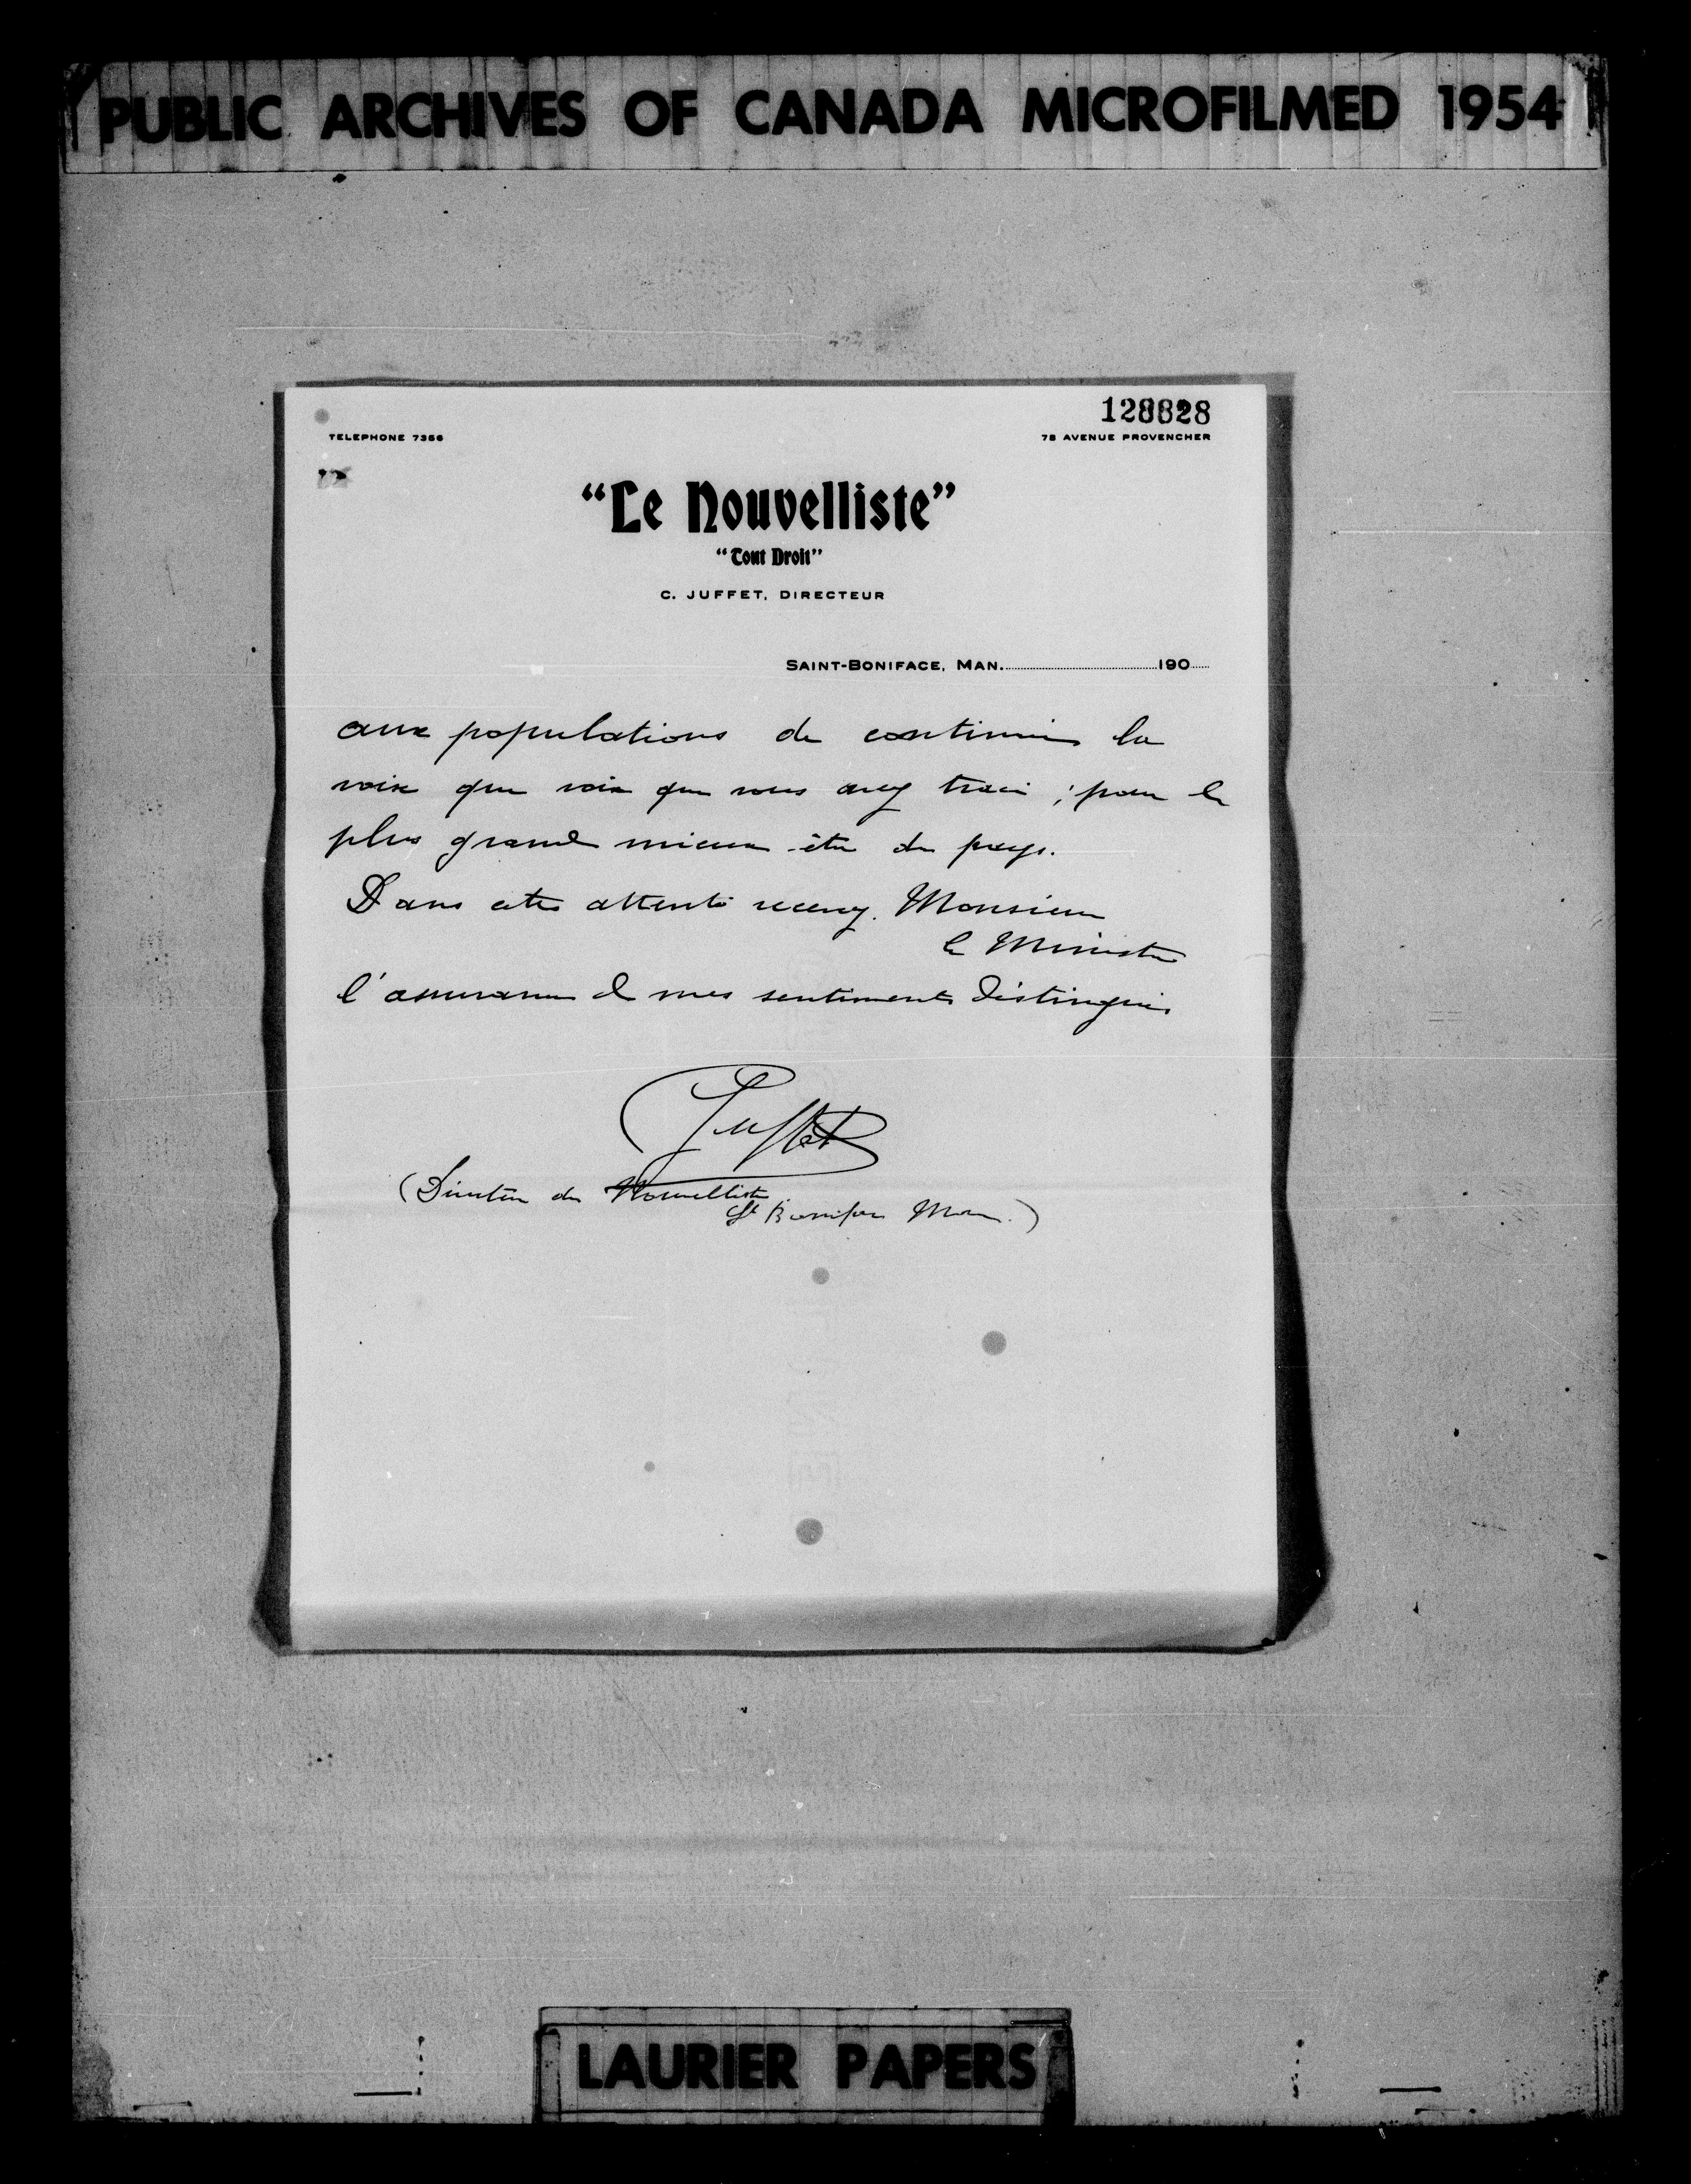 PUBLIC ARCHIVES OF CANADA MICROFILMED 1954
128828
TELEPHONE 7356
78 AVENUE PROVENCHER
"Le Nouvelliste"
"Tout Droit"
C. JUFFET, DIRECTEUR
SAINT-BONIFACE, MAN. 190
aux populations de continuer la
voix que voix que vous avez tracée ; pour le
plus grand mieux-être du pays.
Dans cette attente recevez. Monsieur
le Ministre
l'assurance de mes sentiments distingués
Juffet
(Directeur du Nouvelliste
St Boniface Man.)
LAURIER PAPERS